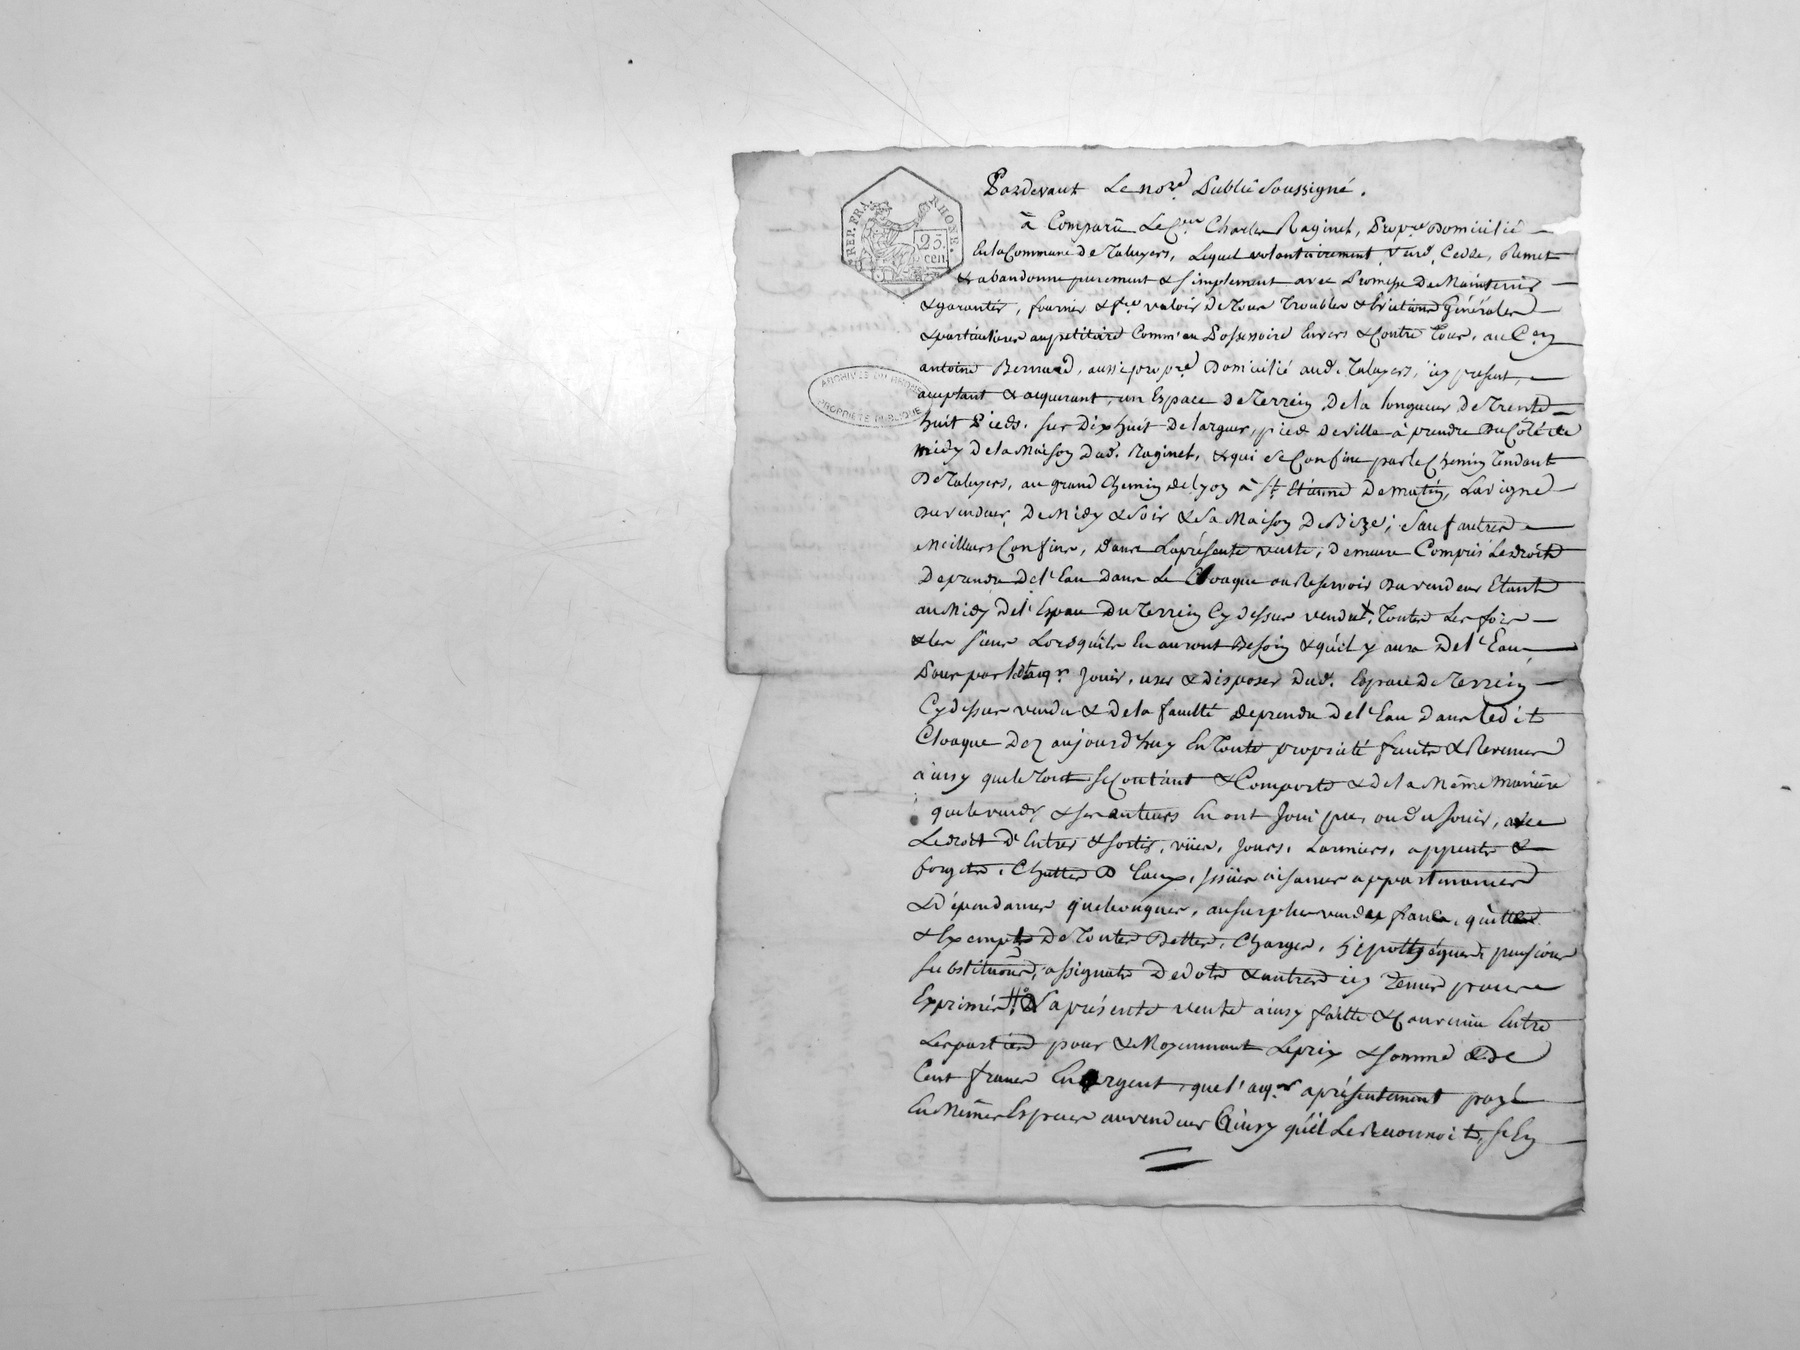 Pardevant Le no.re Public Soussigné.
REP. FRA. RHONE.
25
cen
à Comparu Le C.en Charles Raginet, Propre Domicilié
En la Commune de Taluyers, Lequel volontairement, Vend, Cedde, Remet
& abandonne purement & simplement avec Promesse De Maintenir
& garantir, fournir & f.re valoir De Tous Troubles & Evictions Générales
& particulieres au petitoire Comm'au Possessoire Envers & Contre Tous, au C.en
antoine Bernard, aussi propre Domicilié aud. Taluyers, icy present,
ARCHIVES DU RHONE
PROPRIETE PUBLIQUE
acceptant & acquerant, un Espace De Terrein, De la longueur De Trente
huit Pieds, sur Dix huit De largeur, pied De ville à prendre Du Côté de
midy De la Maison Dud. Raginet, & qui se Confine par le Chemin Tendant
De Taluyers, au grand Chemin de lyon à S.t Etienne De matin, La vigne
Du vendeur, De Midy & Soir & La Maison De Bize; Sauf autres
Meilleurs Confins, Dans La présente vente, demeure Compris Le droit
De prendre De l'Eau Dans Le Cloaque ou Reservoir Du vendeur Etant
au Midy De l'Espace Du Terrein Cy dessus vendu, Toutes Les fois
& les siens Lorsqu'ils En auront Besoin & qu'il y aura De l'Eau,
Pour par led. acq.r Jouir, user & disposer Dud. Espace De Terrein
Cy dessus vendu & de la faculté De prendre De l'Eau Dans Ledit
Cloaque Dez aujourd'huy En Toute propriété fruits & Revenus
ainsy que le Tout se Contient & Comporte & de la Même manière
que le vend.r & ses auteurs En ont Joui pu, ou du Jouir, avec
Le droit D'Entrer & sortir, vües, Jours, Larmiers, appents &
forgets, Chutte D'Eaux, issües aisances appartenances
& Dépendances quelconques, au surplus vendu franc, quitte
& Exempt De Toutes Dettes, Charges, hipothéques, pensions
substitutions, assignats De dots & autres icy Tenus pour
Exprimés, La présente vente ainsy faitte & Convenüe Entre
Les parties pour & Moyennant Le prix & somme de
Cent francs En argent, que l'acq.r a présentement payé
En Mêmes Especes au vendeur Ainsy qu'il Le Reconnoit, s'En